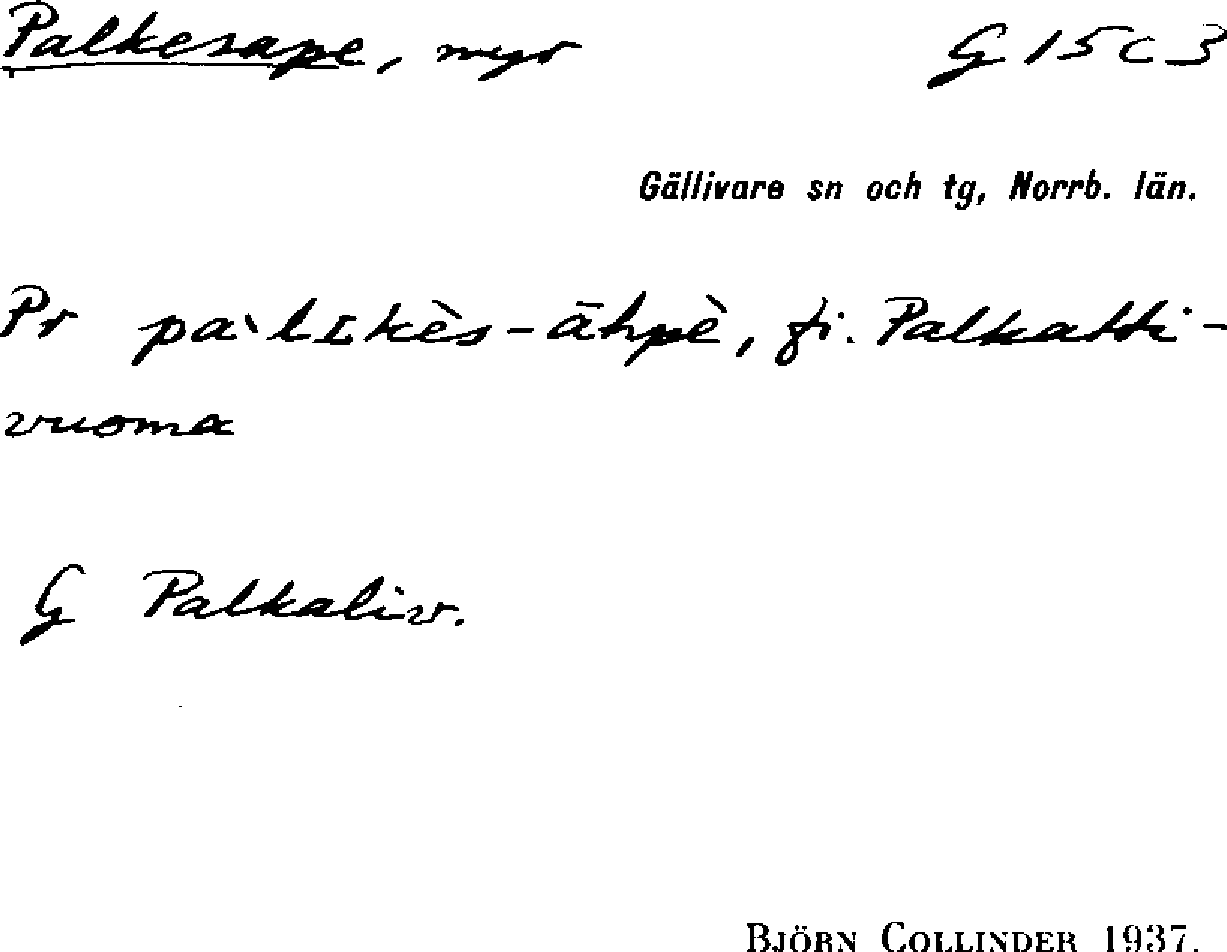 Palkesape, myr G 15 c 3
Gällivare sn och tg, Norrb. län.
Pr pa`lɪkès-āhpè, fi. Palkatti-
vuoma
G Palkaliv.
BJÖRN COLLINDER 1937.